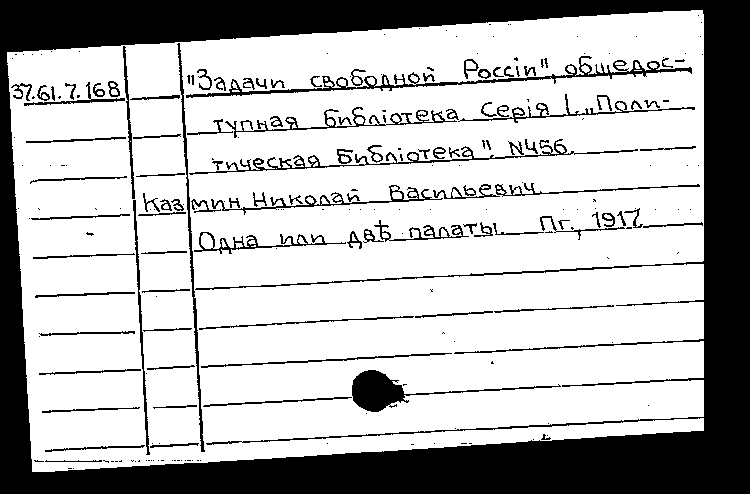 37.61.7.168 "Задачи свободной Россіи", общедос-
тупная библіотека. Серія I. „Поли-
тическая библіотека". N456.
Казмин, Николай Васильевич
Одна или двѣ палаты. Пг., 1917.